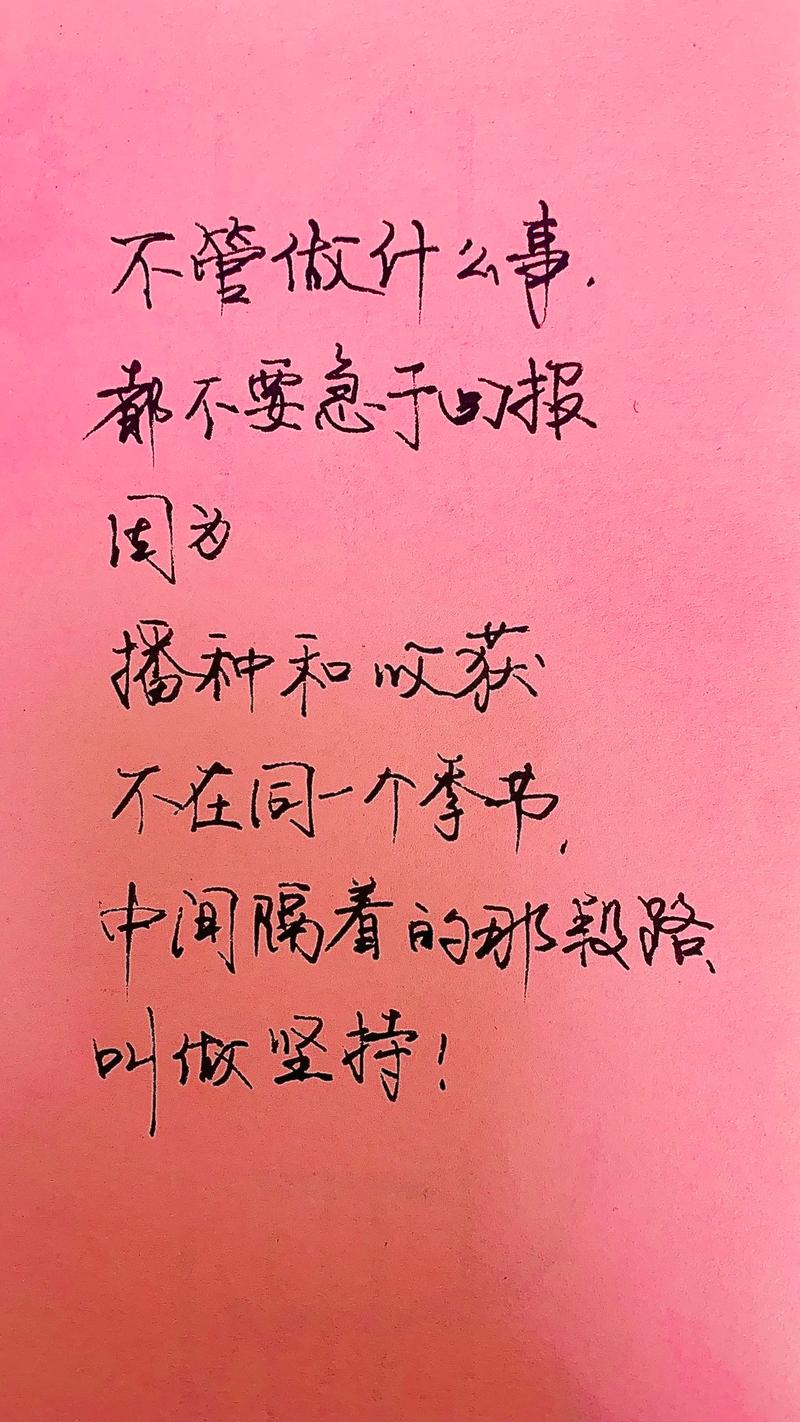 不管做什么事.
都不要急于回报
因为
播种和收获
不在同一个季节,
中间隔着的那段路、
叫做坚持!